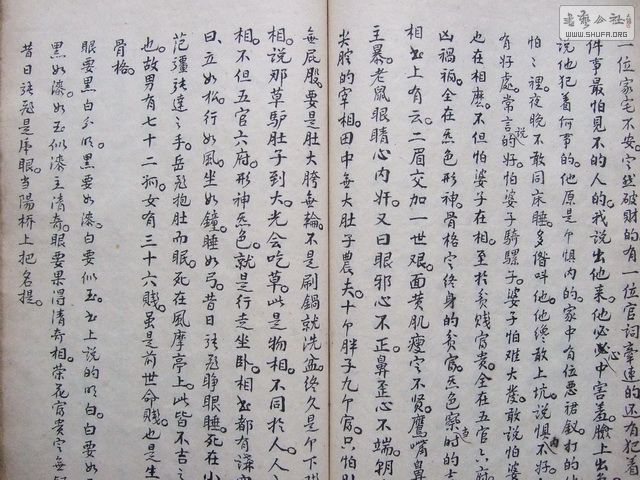 一位家宅不安。定然破財的有一位官詞牽連的还有犯着
件事最怕見不的人的我説出他来他必必中害羞臉上出
说他犯着何事的他原是个惧内的家中有位惡裙釵打的他
怕々裡夜晚不敢同床睡多偺呌他他终敢上坑説惧不好
有好處常言説的好怕婆子騎騾子婆子怕难大娄敢説怕婆
也在相麽不但怕婆子在相至於貧賤富贵全在五官六府
凶禍福全在炁色形神骨格定终身的貧富炁色察时的吉
相书上有云二眉交加一世艰面黄肌瘦定不贤鹰嘴鼻
主暴老鼠眼睛心内奸又曰眼邪心不正鼻歪心不端朝
尖腔的宰相田中無大肚子農夫十个胖子九个富只怕
無屁股要是肚大胯無輪不是刷鍋就洗盆终久是个下
相説那草驴肚子到大光会吃草此是物相不同於人人
相不但五官六府形神炁色就是行走坐卧相书都有講
曰立如松行如風坐如鐘睡如弓昔日張飛睁眼睡死在小
范疆張達之手岳飛抱肚而眠死在風摩亭上此皆不吉之
也故男有七十二孤女有三十六賤虽是前世命賤也是生
骨格
眼要黑白分明黑要如漆白要似玉书上説的明白白要如
黑如漆如玉似漆主清奇眼要果淂清奇相荣花富贵定無
昔日張飛是虎眼当陽桥上把名提
書藝公社
WWW.SHUFA.ORG